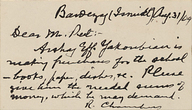 Bardezag (Ismidt) Aug. 31/04
Dear Mr. Peet:-
Arshag Eff. Yakoubian is
making purchases for the school
- books, paper, dishes, &c. Please
give him the needed sums of
money, which he may demand.
R. Chambers